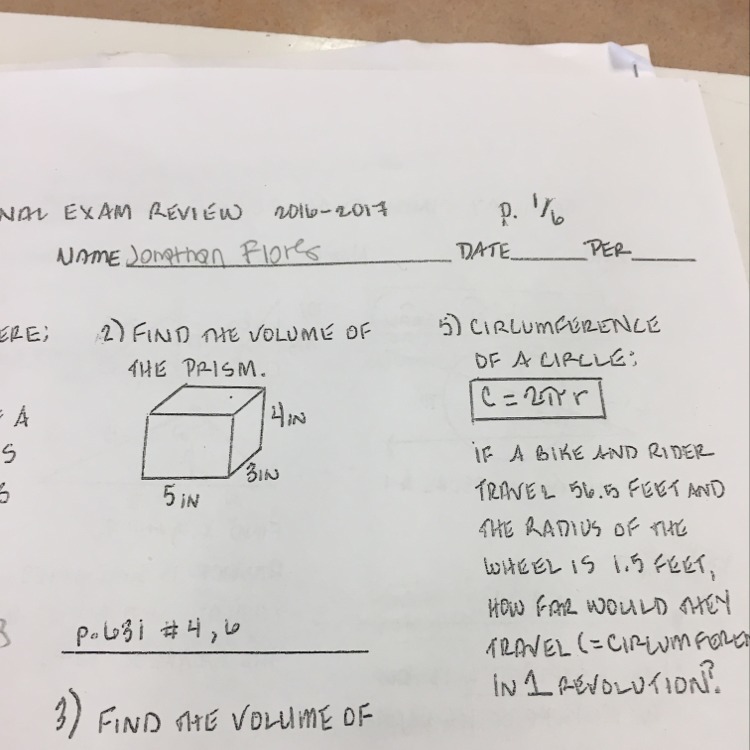 NAL EXAM REVIEW 2016-2017 P. 1/6
NAME Jonathan Flores DATE PER
ERE:
F A
S
3
3
2) FIND THE VOLUME OF
THE PRISM.
4 IN
3 IN
5 IN
p. 631 #4, 6
3) FIND THE VOLUME OF
5) CIRCUMFERENCE
OF A CIRCLE:
C = 2πr
IF A BIKE AND RIDER
TRAVEL 56.5 FEET AND
THE RADIUS OF THE
WHEEL IS 1.5 FEET,
HOW FAR WOULD THEY
TRAVEL (= CIRCUMFEREN
IN 1 REVOLUTION?